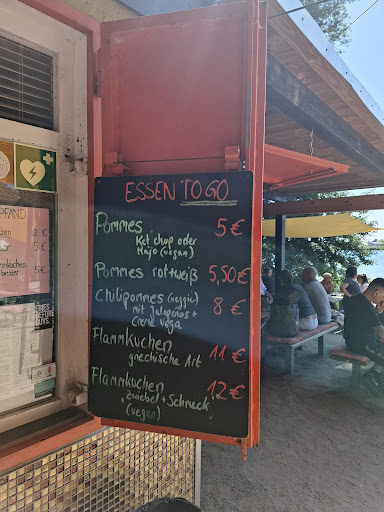 ESSEN TO GO
Pommes 5€
Ketchup oder
Mayo (vegan)
Pommes rot+weiß 5,50€
Chilipommes (veggie) 8€
mit Jalapeños +
Creme Vega
Flammkuchen 11€
griechische Art
Flammkuchen 12€
"Zwiebel + Schmeck"
(vegan)
PFAND
2€
5€